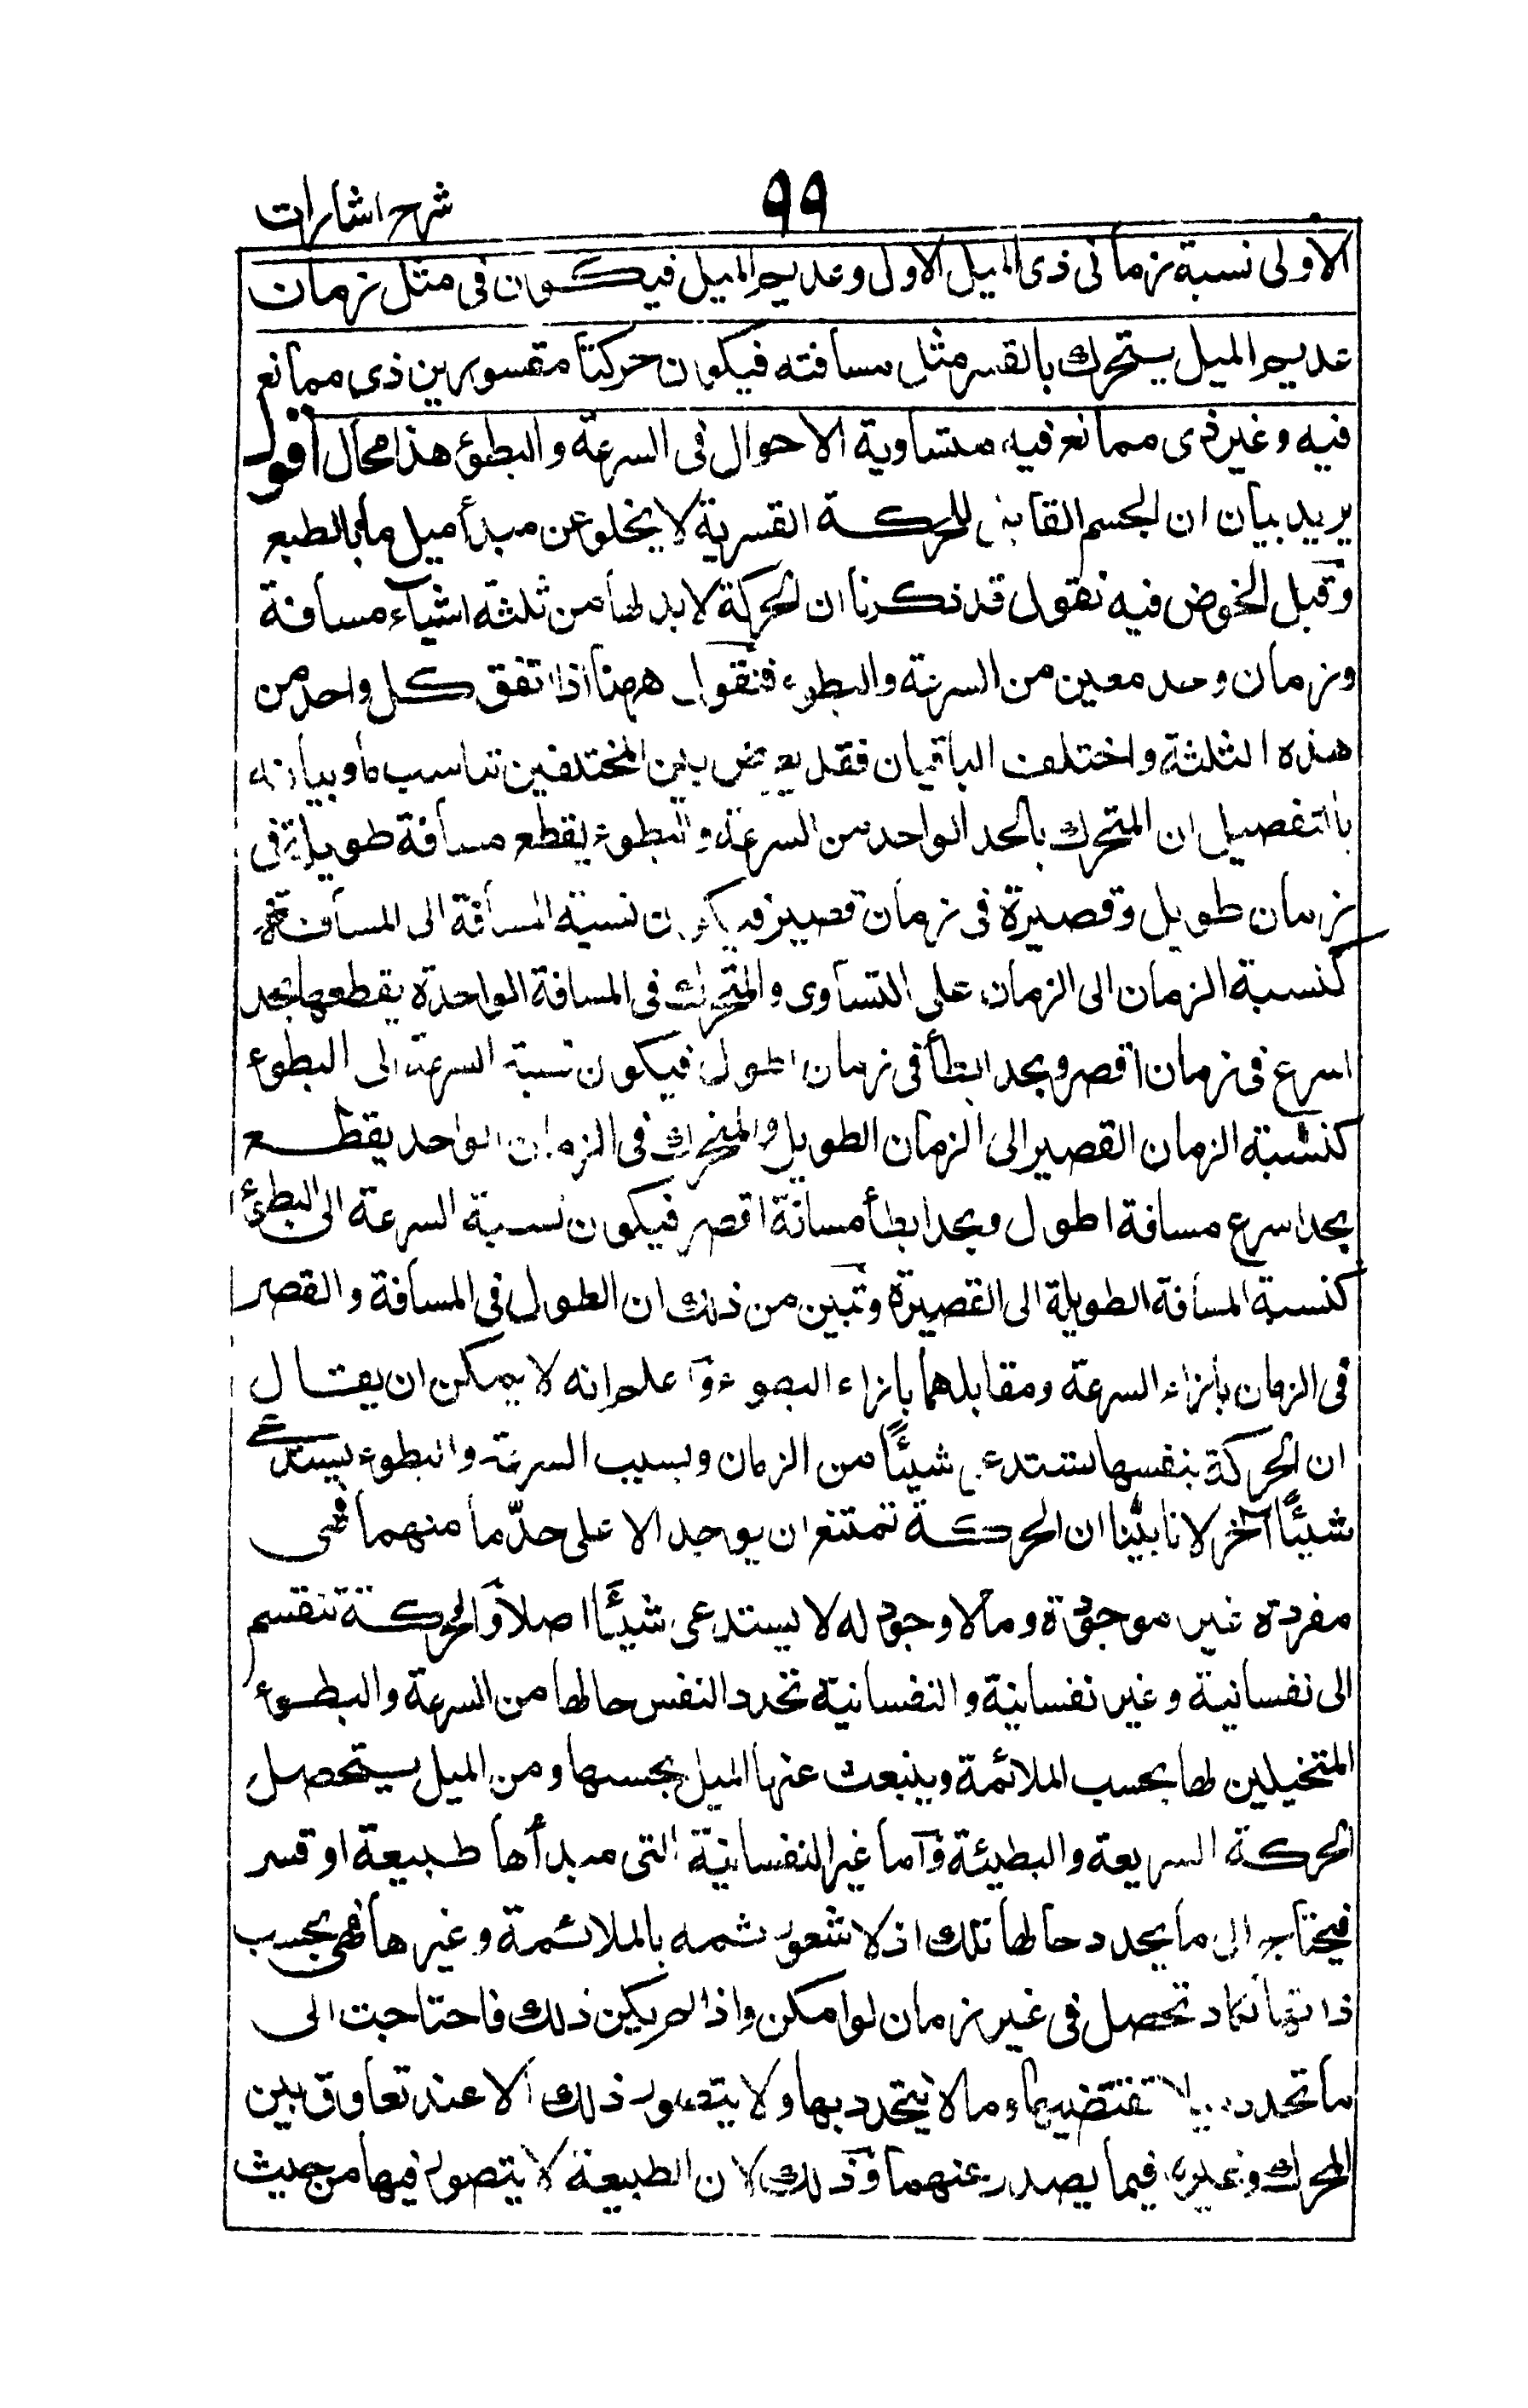 شرح اشارات
٩٩
الاولى نسبة زمانى ذى الميل الاول وعديم الميل فيكون فى مثل زمان
عديم الميل يتحرك بالقسر مثل مسافته فيكون حركتا مقسورين ذى ممانع
فيه وغير ذى ممانع فيه متساوية الاحوال فى السرعة والبطوء هذا محال اقول
يريد بيان ان الجسم القابل للحركة القسرية لا يخلو عن مبدأ ميل ما بالطبع
وقبل الخوض فيه نقول قد ذكرنا ان الحركة لا بد لها من ثلثة اشياء مسافة
وزمان وحد معين من السرعة والبطوء فنقول ههنا اذا اتفق كل واحد من
هذه الثلثة واختلف الباقيان فقد يعرض بين المختلفين تناسب ما وبيانه
بالتفصيل ان المتحرك بالحد الواحد من السرعة والبطوء يقطع مسافة طويلة فى
زمان طويل وقصيرة فى زمان قصير فيكون نسبة المسافة الى المسافة
كنسبة الزمان الى الزمان على التساوى والمتحرك فى المسافة الواحدة يقطعها بحد
اسرع فى زمان اقصر وبحد ابطأ فى زمان اطول فيكون نسبة السرعة الى البطوء
كنسبة الزمان القصير الى الزمان الطويل والمتحرك فى الزمان الواحد يقطع
بحد اسرع مسافة اطول وبحد ابطأ مسافة اقصر فيكون نسبة السرعة الى البطوء
كنسبة المسافة الطويلة الى القصيرة وتبين من ذلك ان الطول فى المسافة والقصر
فى الزمان بازاء السرعة ومقابلهما بازاء البطوء واعلم انه لا يمكن ان يقال
ان الحركة بنفسها تستدعى شيئًا من الزمان وبسبب السرعة والبطوء يستدعى
شيئًا آخر لانا بيّنا ان الحركة تمتنع ان يوجد الا على حدّ ما منهما فهى
مفردة غير موجودة وما لا وجود له لا يستدعى شيئًا اصلا والحركة تنقسم
الى نفسانية وغير نفسانية والنفسانية تحدد النفس حالها من السرعة والبطوء
المتخيلين لها بحسب الملائمة وينبعث عنها الميل بحسبها ومن الميل يتحصل
الحركة السريعة والبطيئة واما غير النفسانية التى مبدأها طبيعة او قسر
فيحتاج الى ما يحدد حالها تلك اذ لا شعور ثمه بالملائمة وغيرها فهى بحسب
ذاتها تكاد تحصل فى غير زمان لو امكن واذا لم يكن ذلك فاحتاجت الى
ما تحدد تقتضيها وما لا يتحدد بها ولا يتصور ذلك الا عند تعاوق بين
المحرك وغيره فيما يصدر عنهما وذلك لان الطبيعة لا يتصور فيها من حيث